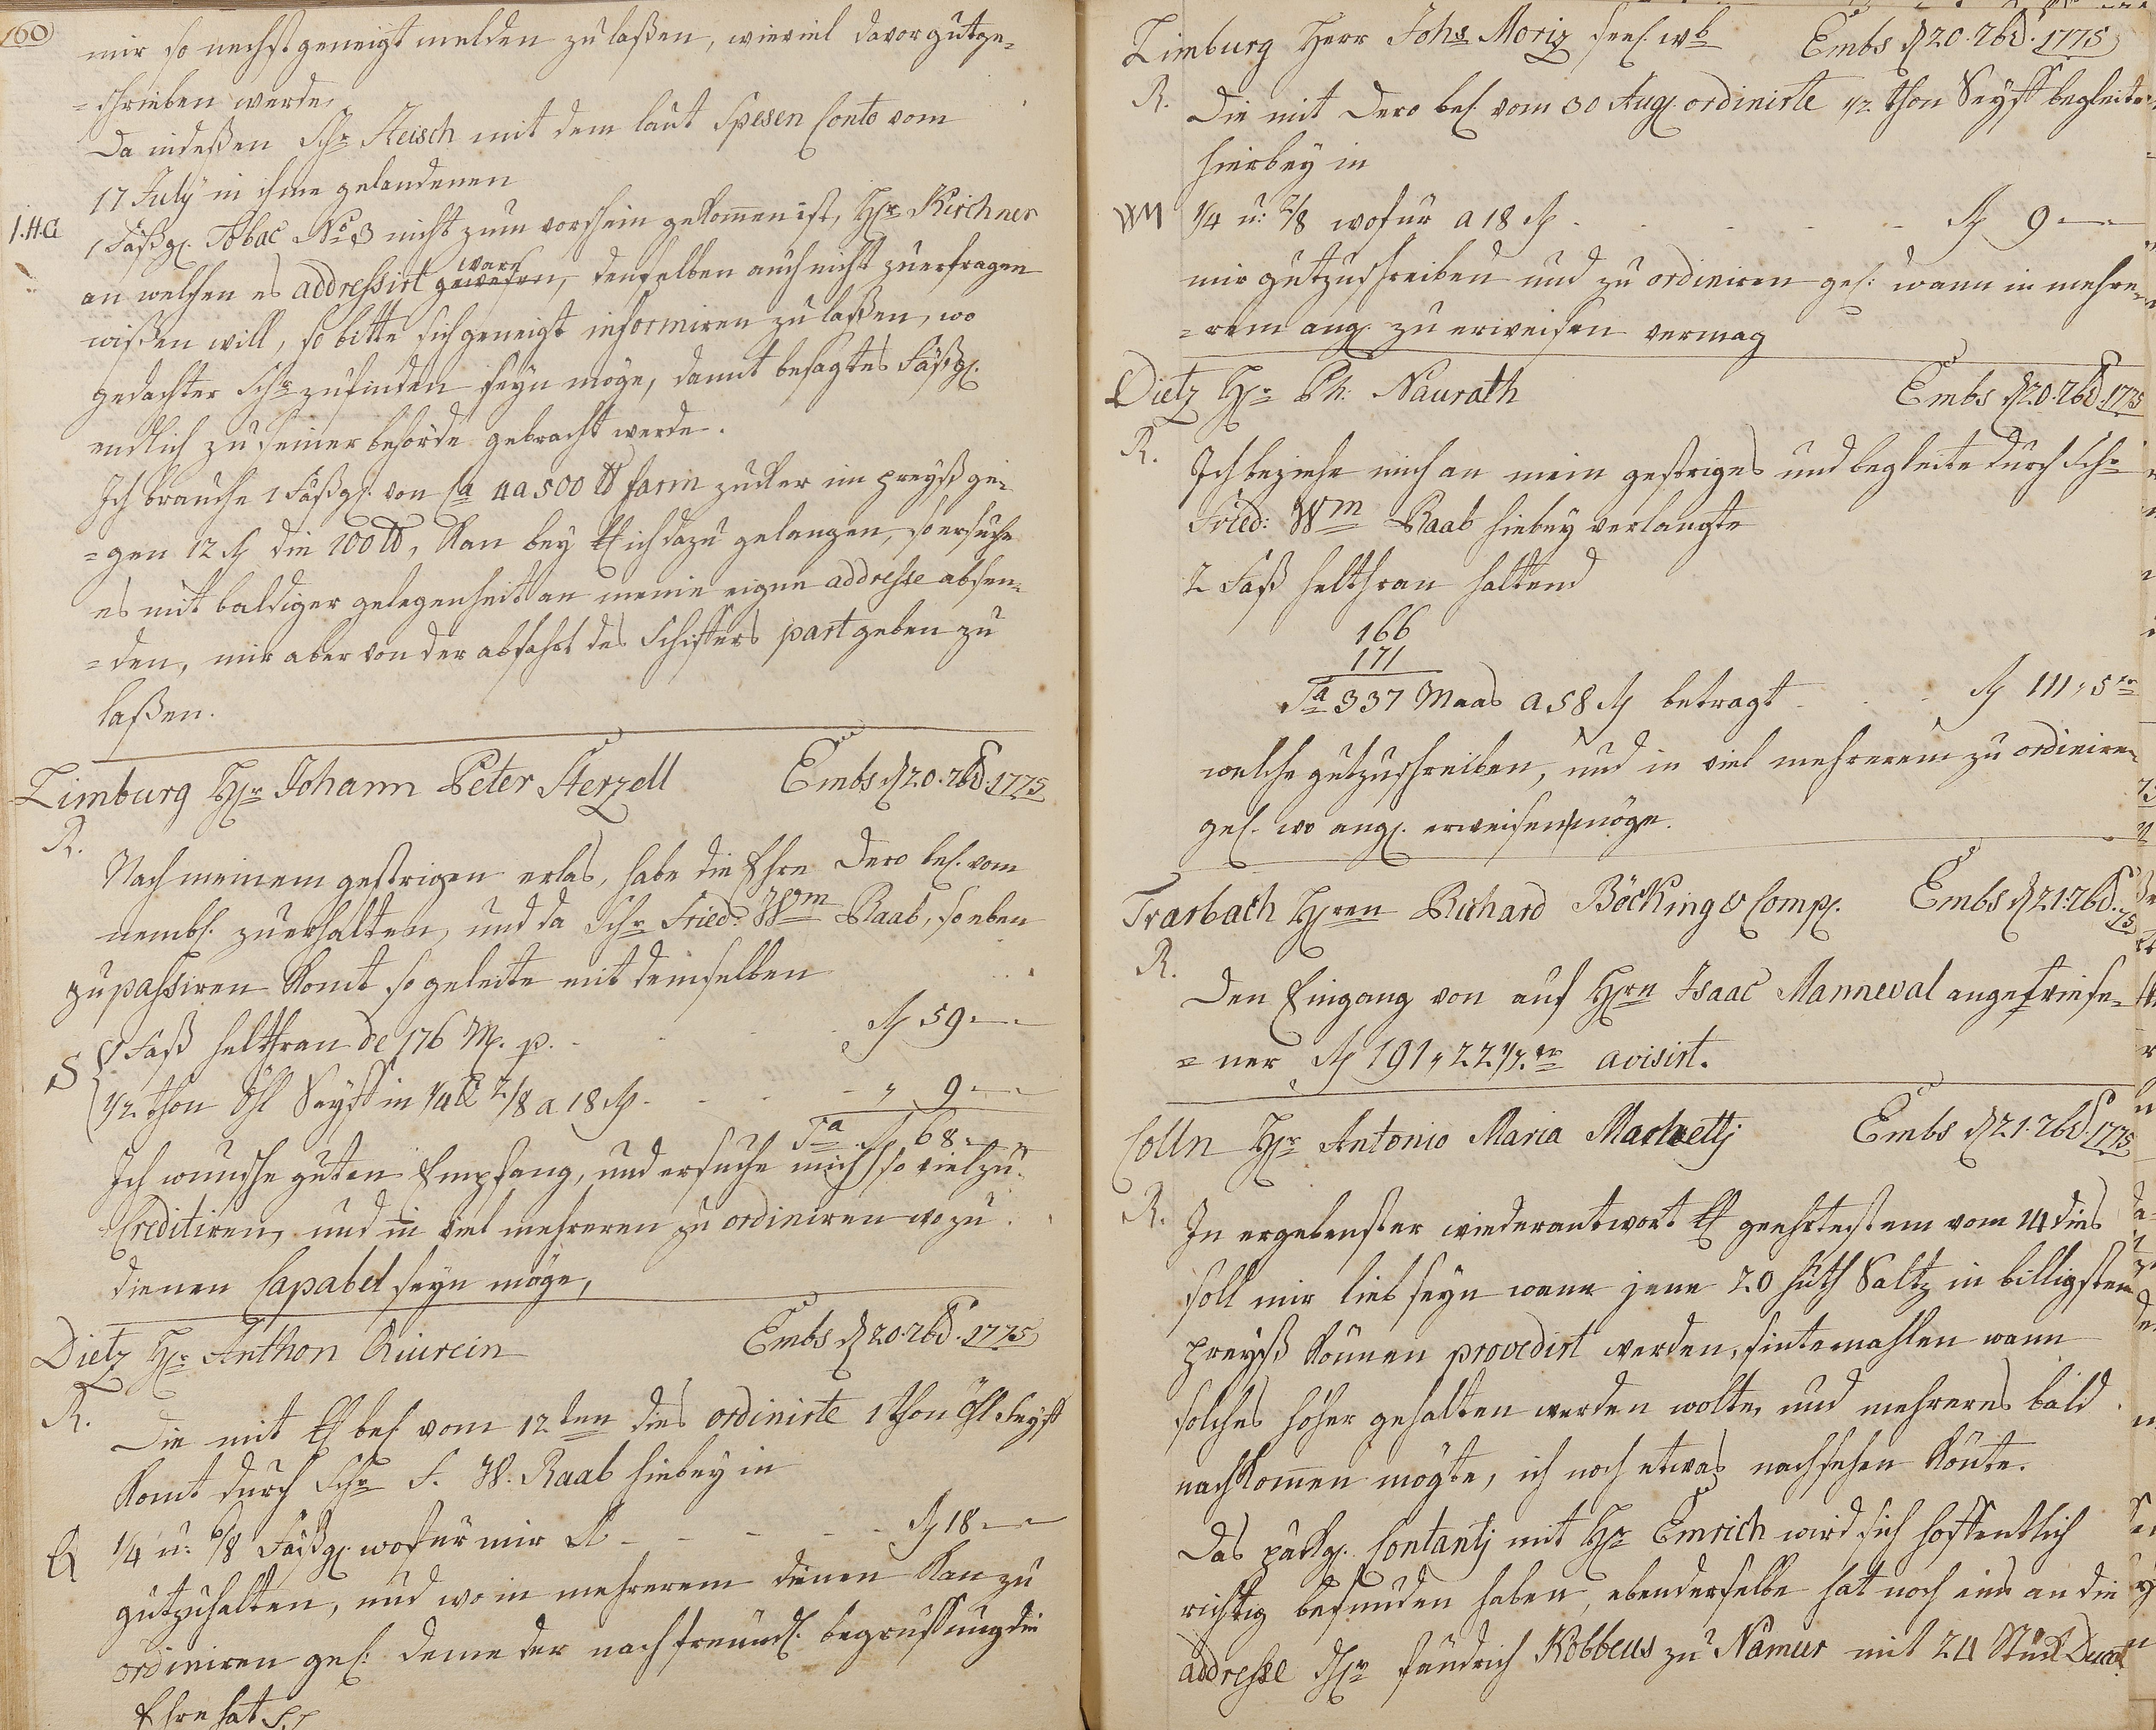 160
mir so nechst geneigt melden zu laßen, wieviel davor gutge=
=schrieben werde,
Da indeßen Schr Fleisch mit dem laut Spesen Conto vom
17 July in ihme geladenen
I.H.a 1 Fäßgl. Tobac No 3 nicht zum vorschein gekomen ist, Hr Kirchner
an welchen es addressirt gewesen, denselben auch nicht zu erfragen
ware
wißen will, so bitte sich geneigt informiren zu laßen, wo
gedachter Schr zu finden seyn möge, damit besagtes Fäßgl.
endlich zu seiner behörde gebracht werde.
Ich brauche 1 Fäßgl. von Ca 4 a 500 lb farin zucker im preyß ge=
=gen 12 Rh die 100 lb, Kan bey E ich dazu gelangen, so ersuche
es mit baldiger gelegenheit an meine eigne addresse absen=
=den, mir aber von der abfahrt des Schiffers part geben zu
laßen.
Limburg Hr Johann Peter Herzell Embs d 20. 7bd. 1775
R.
Nach meinem gestrigen erlas, habe die Ehre Dero bel. vom
nembl. zu erhalten, und da Schr Fried: Wm Raab, so eben
zu passiren Komt so geleite mit demselben
S 1 Faß helthran de 176 M. p. Rh 59 „ —
1/2 thon Öhl Seyff in 1/4 & 2/8 a 18 Rh „ 9 „ —
Sa Rh 68 „ —
Ich wunsche guten Empfang, und ersuche mich so viel zu
Creditiren, und in viel mehreren zu ordiniren wo zu
dienen Capabel seyn möge,
Dietz Hr Anthon Quirein Embs d 20. 7bd. 1775
R.
Die mit E bel. vom 12ten dies ordinirte 1 thon Öhl Seyff
Komt durch Schr F. W. Raab hiebey in
Q 1/4 u: 6/8 Fäßgl. wofür mir Rh 18 „ —
gutzuhalten, und wo in mehrerem dienen Kan zu
ordiniren gel: deme der nach freundl. begrussung die
Ehre hat
Limburg Herr Johs Moriz seel. wb Embs d 20. 7bd. 1775
R.
Die mit Dero bel. vom 30 Aug. ordinirte 1/2 thon Seyff begleite
hierbey in
WM 1/4 u: 2/8 wofur a 18 Rh Rh 9 „ —
mir gutzuschreiben und zu ordiniren gel: wann in mehre=
=rem ang. zu erweisen vermag
Dietz Hr Ph: Naurath Embs d 20. 7bd. 1775
R.
Ich beziehe mich an mein gestriges und begleite durch Schr
Fried: Wm Raab hiebey verlangte
2 Faß helthran haltend
166
171
Sa 337 Maas a 58 Rh betragt Rh 111 „ 5
welche gutzuschreiben, und in viel mehrerem zu ordiniren
gel. wo ang. erweisen möge.
Trarbach Hren Richard Böcking & Comp. Embs d 21. 7bd. 75
R.
Den Eingang von auf Hrn Isaac Manneval angewiese=
=ner Rh 191 „ 22 1/2 avisirt.
Cölln Hr Antonio Maria Marchettj Embs d 21. 7bd. 1775
R.
In ergebenster wiederantwort E geehrtestem vom 14 dies
soll mir lieb seyn wann jene 20 huth Saltz in billigstem
preyß können provedirt werden, sintemahlen wann
solches höher gehalten werden wolte, und mehreres bald
nachkomen mögte, ich noch etwas nachsehen könte.
Das päckg. Contantj mit Hr Emrich wird sich hoffentlich
richtig befunden haben, ebenderselbe hat noch eins an die
addresse Hr fändrich Kobbeus zu Namur mit 24 Stück Ducat